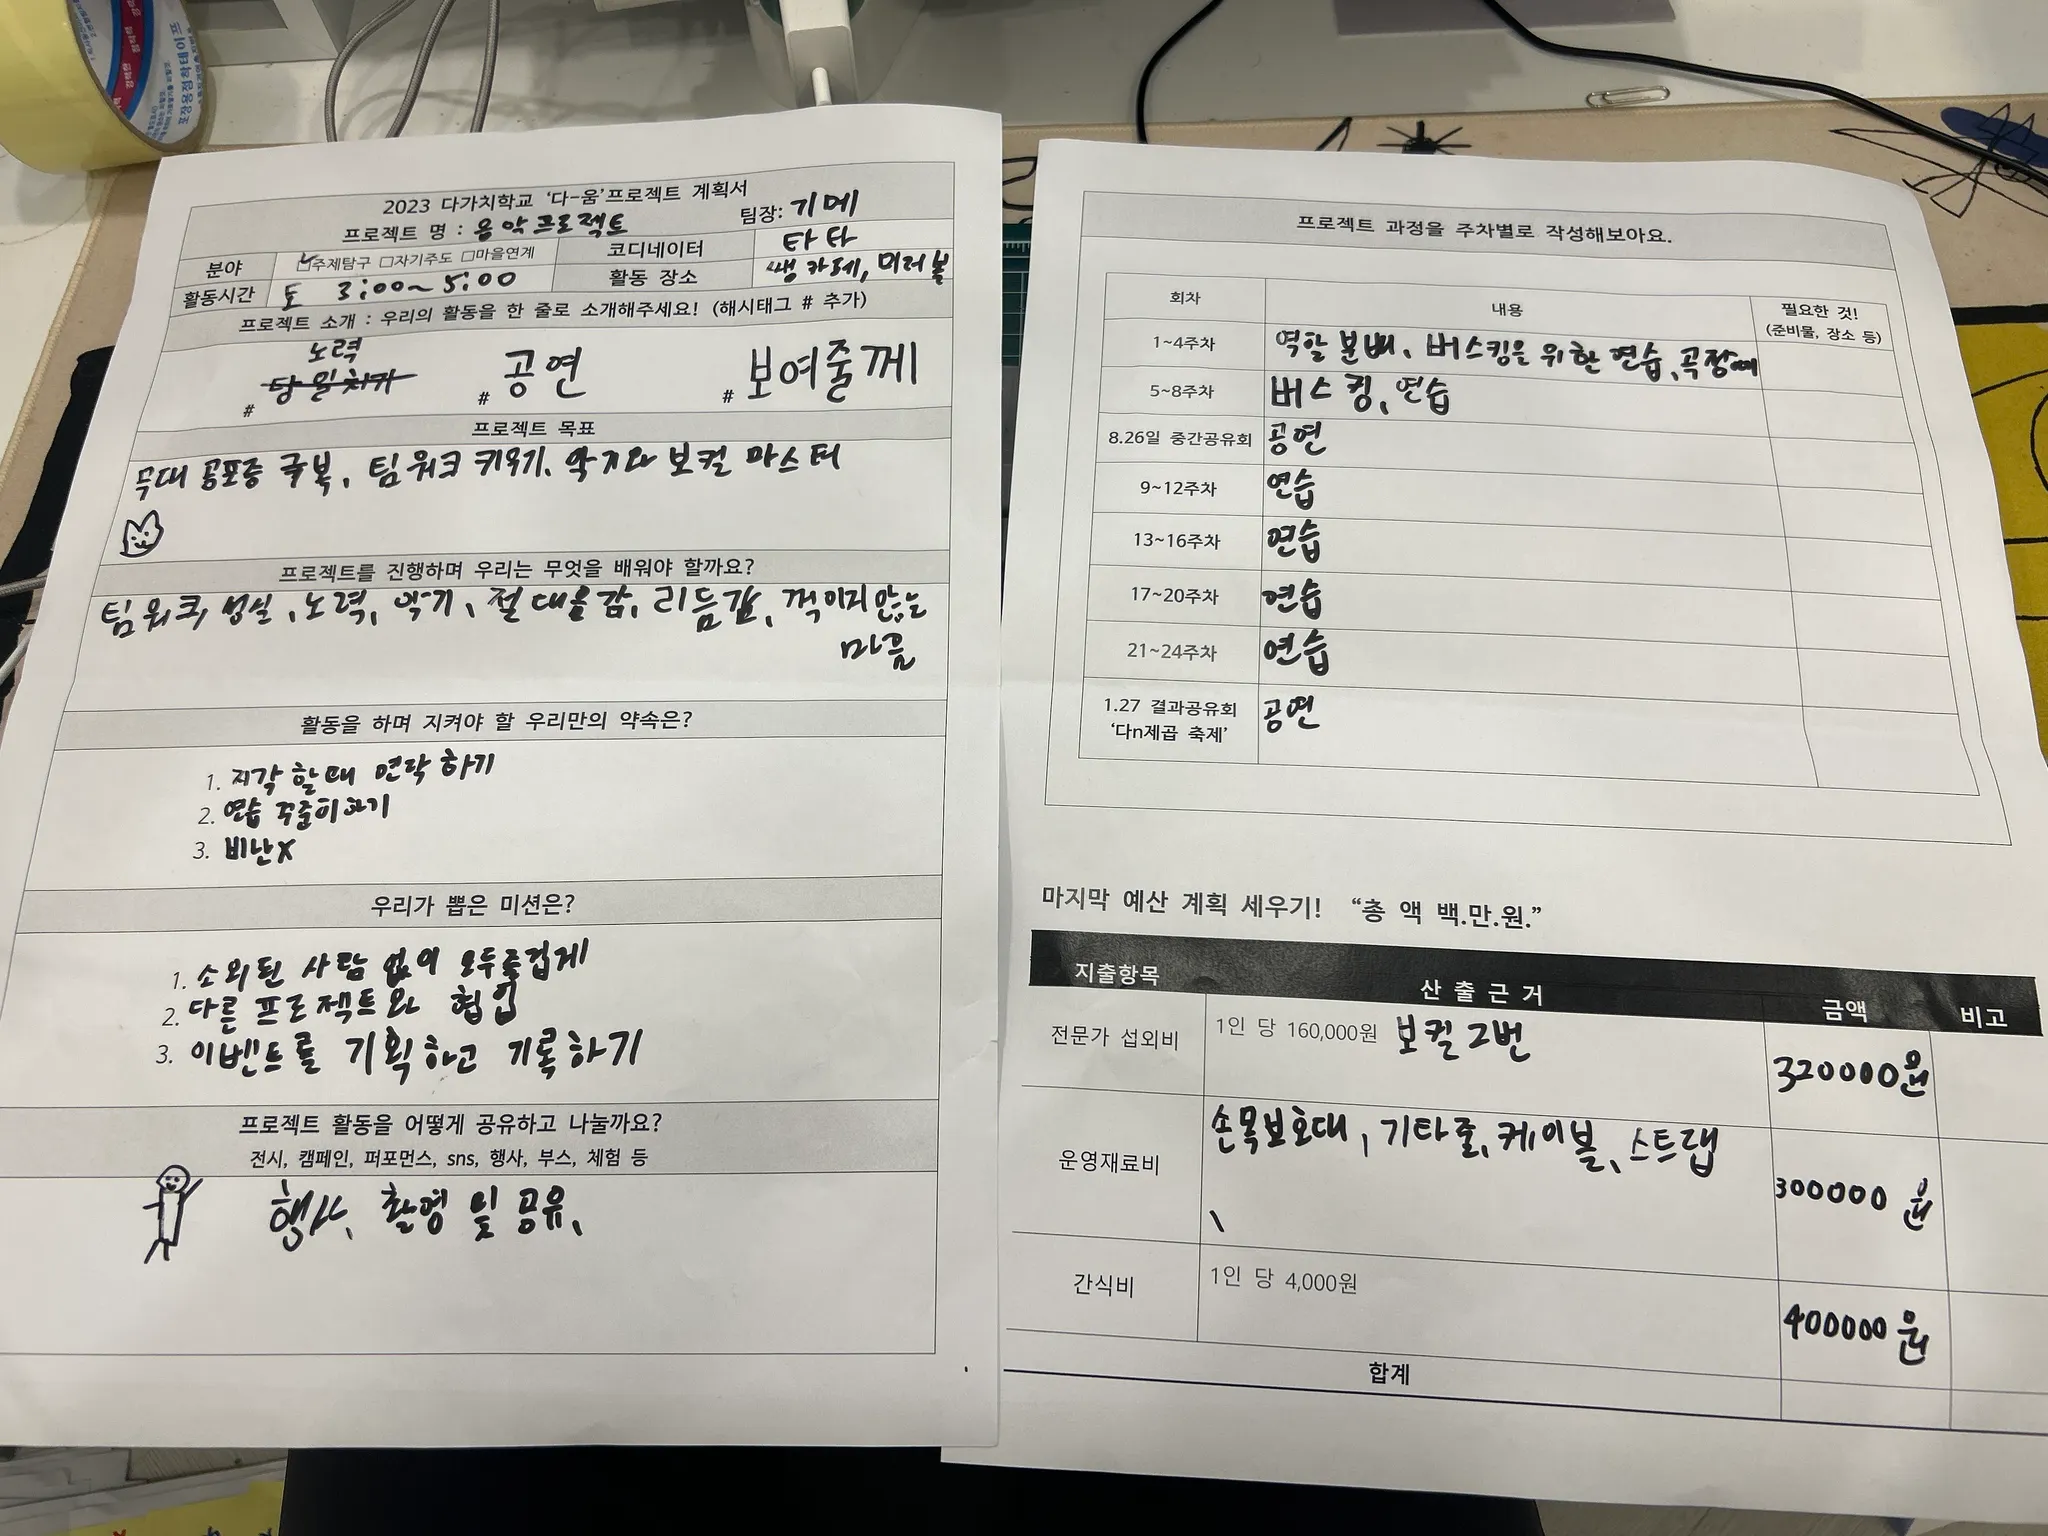 포장용점착테이프
2023 다가치학교 '다-움'프로젝트 계획서
프로젝트 명 : 음악프로젝트 팀장: 기메
분야 ☑주제탐구 □자기주도 □마을연계 코디네이터 타타
활동시간 토 3:00~5:00 활동 장소 쌩카페, 미러볼
프로젝트 소개 : 우리의 활동을 한 줄로 소개해주세요! (해시태그 # 추가)
노력
# 당일치기 # 공연 # 보여줄께
프로젝트 목표
무대 공포증 극복, 팀워크 키우기. 악기와 보컬 마스터
프로젝트를 진행하며 우리는 무엇을 배워야 할까요?
팀워크, 성실, 노력, 악기, 절대음감, 리듬감, 꺽이지 않는
마음
활동을 하며 지켜야 할 우리만의 약속은?
1. 지각할때 연락하기
2. 연습 꾸준히하기
3. 비난X
우리가 뽑은 미션은?
1. 소외된 사람 없이 모두즐겁게
2. 다른 프로젝트와 협업
3. 이벤트를 기획하고 기록하기
프로젝트 활동을 어떻게 공유하고 나눌까요?
전시, 캠페인, 퍼포먼스, sns, 행사, 부스, 체험 등
행사, 촬영 및 공유,
프로젝트 과정을 주차별로 작성해보아요.
회차 내용 필요한 것!
(준비물, 장소 등)
1~4주차 역할 분배, 버스킹을 위한 연습, 곡정하기
5~8주차 버스킹, 연습
8.26일 중간공유회 공연
9~12주차 연습
13~16주차 연습
17~20주차 연습
21~24주차 연습
1.27 결과공유회 공연
'다n제곱 축제'
마지막 예산 계획 세우기! "총 액 백.만.원."
지출항목 산 출 근 거 금액 비고
전문가 섭외비 1인 당 160,000원 보컬 2번 320000원
운영재료비 손목보호대, 기타줄, 케이블, 스트랩 300000 원
간식비 1인 당 4,000원 400000 원
합계